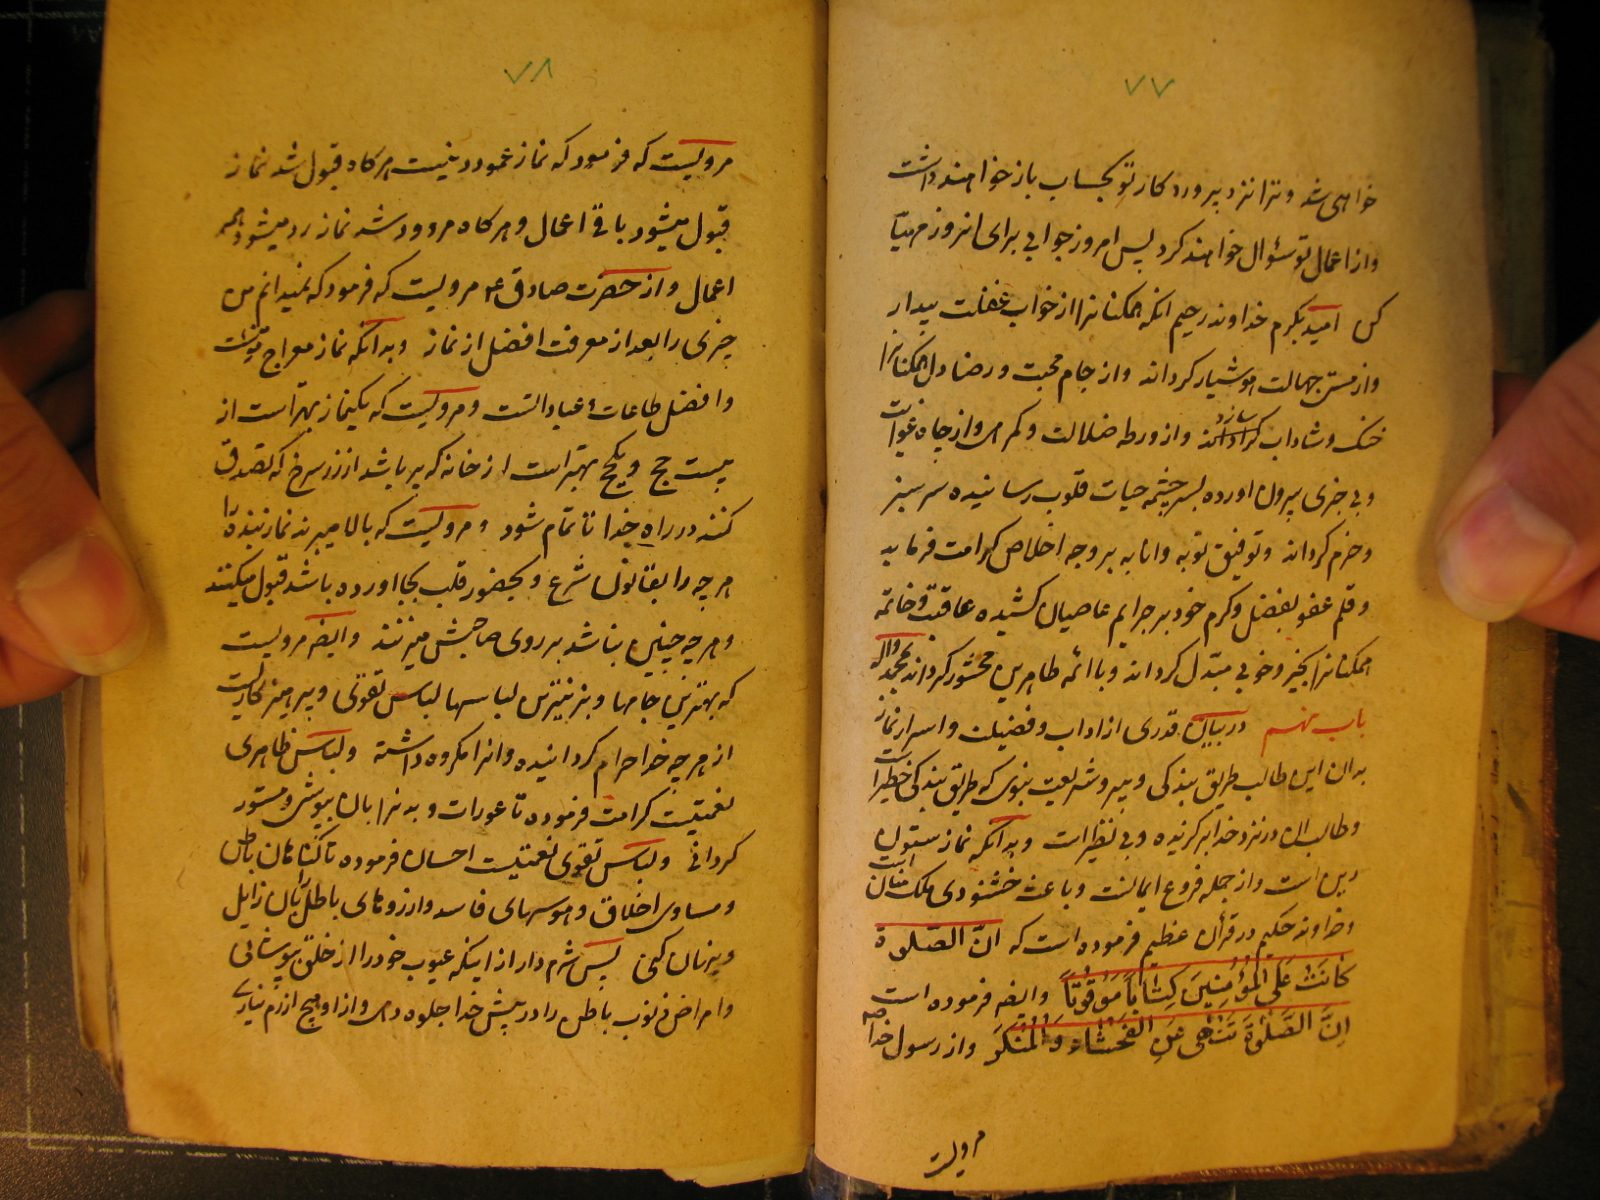 ۷۷
خواهی شد و ترا نزد پروردکار تو بحساب باز خواهند داشت
و از اعمال تو سئوال خواهند کرد پس امروز جوابی برای انروز مهیّا
کن امید بکرم خداوند رحیم انکه همکنانرا از خواب غفلت بیدار
و از مستی جهالت هوشیار کرداند و از جام محبت و رضا دل همکنانرا
خنک و شاداب سازد و از ورطه ضلالت و کمراهی و از چاه غوایت
و بی خبری بیرون اورده بسرچشمه حیات قلوب رسانیده سرسبز
و خرم کرداند و توفیق توبه و انابه بر وجه اخلاص کرامت فرماید
و قلم عفو بفضل و کرم خود بر جرایم عاصیان کشیده عاقبت و خاتمه
همکنانرا بخیر و خوبی مبّدل کرداند و با ائمه طاهرین محشور کرداند بمحمد واله
باب نهم در بیان قدری از اداب و فضیلت و اسرار نماز
بدان این طالب طریق بندکی و پیرو شریعت نبوی که طریق بندکی خطیر است
و طالب ان در نزد خدا برکزیده و بی نظیر است و بدانکه نماز ستون
دین است و از جمله فروع ایمانست و باعث خشنودی ملک منان است
و خداوند حکیم در قرآن عظیم فرموده است که انَّ الصَّلوة
کانَتْ عَلَی الْمُؤمِنینَ کِتٰاباً مَوْقُوتاً و ایضه فرموده است
اِنَّ الصَّلوٰةَ تَنْهٰی عَنِ الْفَحْشٰاء وَ الْمُنْکَر و از رسول خدا ص
مرویست
۷۸
مرویست که فرمود که نماز عمود دینست هرکاه قبول شد نماز
قبول میشود باقی اعمال و هرکاه مردود شد نماز رد میشود همه
اعمال و از حضرت صادق ع مرویست که فرمود که نمیدانم من
چیزی را بعد از معرفت افضل از نماز و بدانکه نماز معراج مؤمنست
و افضل طاعات و عباداتست و مرویست که یکنماز بهتر است از
بیست حج و یکحج بهتر است از خانه که پر باشد از زر سرخ که تصدق
کنند در راه خدا تا تمام شود و مرویست که بالا میبرند نماز بنده را
هرچه را بقانون شرع و بحضور قلب بجا اورده باشد قبول میکنند
و هرچه چنین نباشد بر روی صاحبش میزنند و ایضه مرویست
که بهترین جامها و بزینترین لباسها لباس تقوی و پرهیزکاریست
از هرچه خدا حرام کردانیده و انرا مکروه داشته و لباس ظاهری
نعمتیست کرامت فرموده تا عورات و بدنرا بان بپوشی و مستور
کردانی و لباس تقوی نعمتیست احسان فرموده تا کناهان باطن
و مساوی اخلاق و هوسهای فاسد و ارزوهای باطل را بان زایل
و پنهان کنی پس شرم دار از اینکه عیوب خود را از خلق بپوشانی
و امراض ذنوب باطن را در پیش خدا جلوه دهی و از او هیچ ازرم نیاری